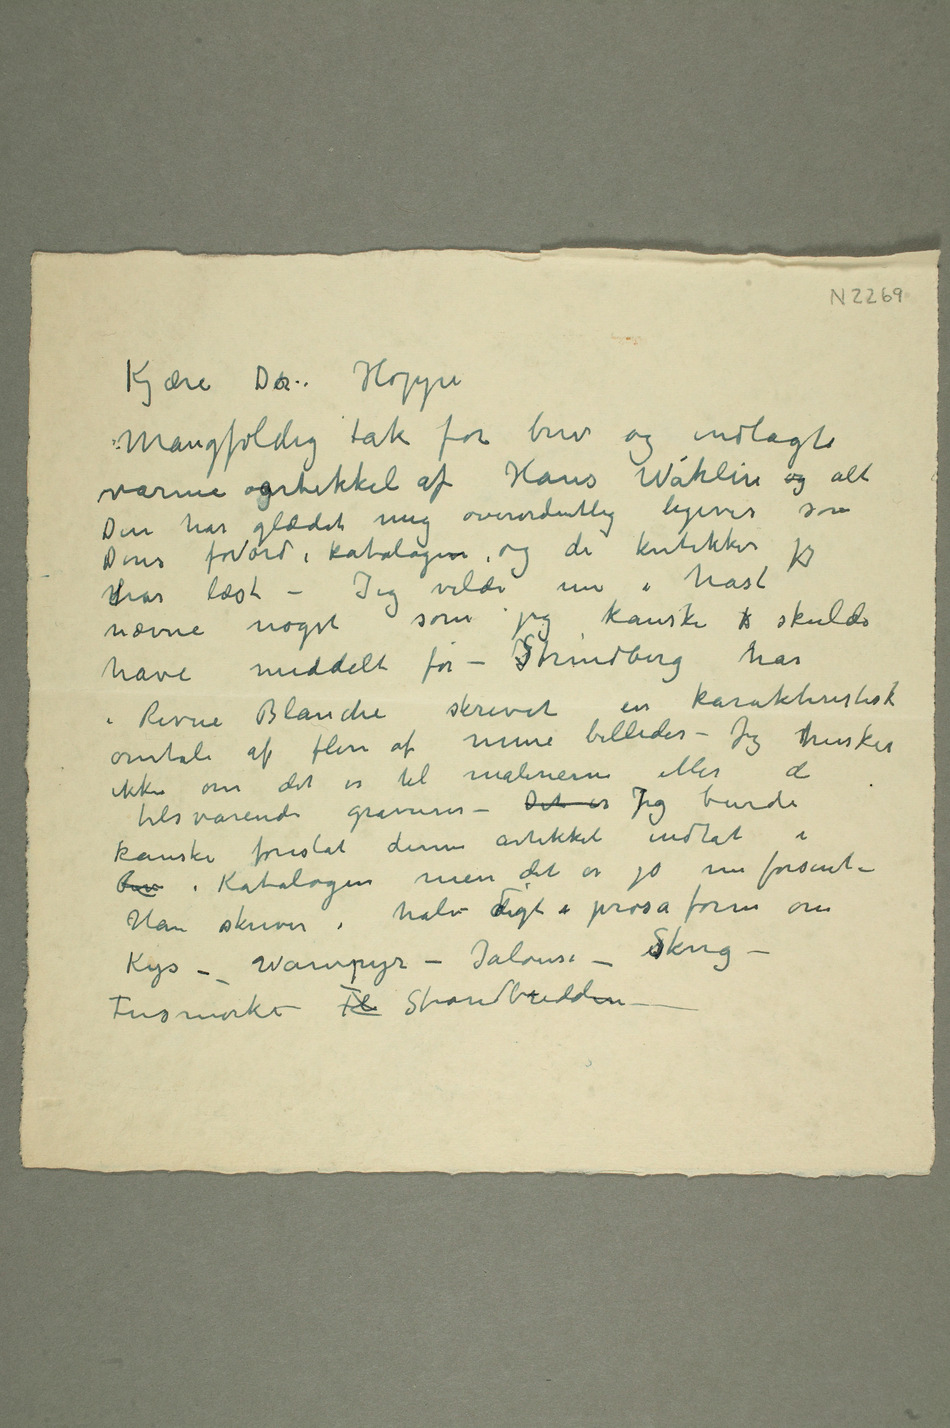 N 2269
Kjære Dr. Hoppe
Mangfoldig tak for brev og indlagte
varme artikkel af Hans Wåhlin og alt
Den har glædet mig overordentlig ligeves som
Deres forord i katalogen, og de kritikker jeg
har læst – Jeg vilde nu i hast
nævne noget som jeg kanske skulde
have meddelt før – Strindberg har
i Revue Blanche skrevet en karakteristisk
omtale af flere af mine billeder – Jeg husker
ikke om det er til malerierne eller de
tilsvarende gravurer – Det er Jeg burde
kanske foreslåt denne artikkel indtat i
i Katalogen men det er jo nu forsent –
Han skriver i halv digt i prosa form om
Kys – Wampyr – Jalousi – Skrig –
Tusmørke – Til Strandbredden –